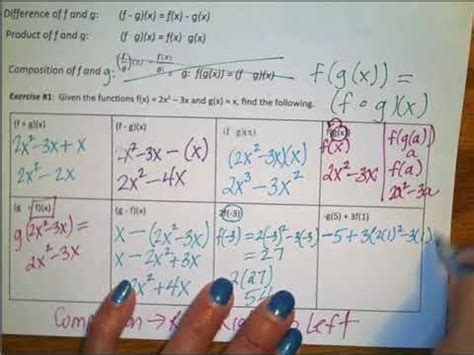 Difference of f and g: (f - g)(x) = f(x) - g(x)
Product of f and g: (f · g)(x) = f(x) · g(x)
Composition of f and g: g: f(g(x)) = (f g)(x)
f(g(x)) =
(f ∘ g)(x)
Exercise #1: Given the functions f(x) = 2x² – 3x and g(x) = x, find the following.
(f + g)(x)
2x²-3x+x
2x²-2x
(f - g)(x)
2x²-3x-(x)
2x²-4x
(f g)(x)
(2x²-3x)(x)
2x³-3x²
f(g(x))
f(x)
2x²-3x
f(g(a))
a
f(a)
2a²-3a
(g f)(x)
g(2x²-3x)=
2x²-3x
(g - f)(x)
x-(2x²-3x)
x-2x²+3x
2x²+4x
2f(-3)
f(-3)=2(-3)²-3(-3)
=27
2(27)
54
-g(5) + 3f(1)
-5+3(2(1)²-3(1))
Left